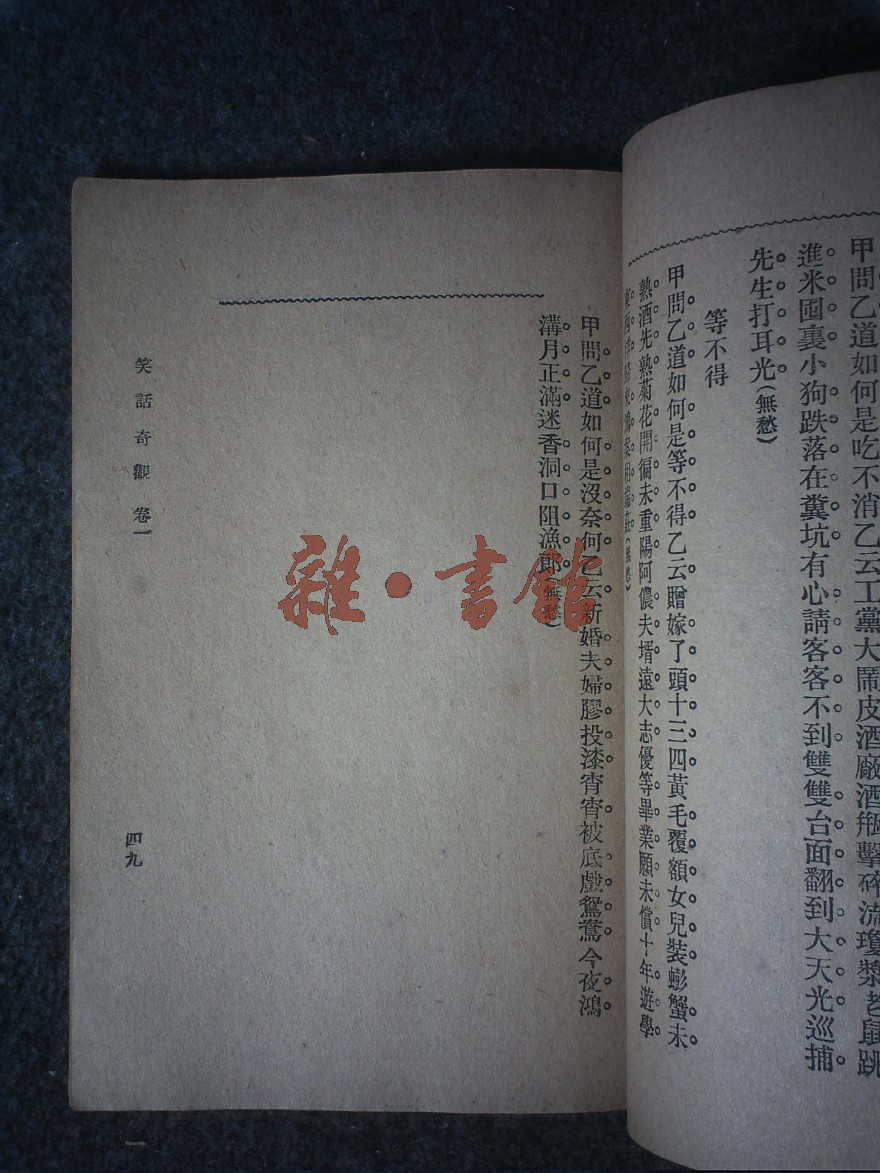 甲問乙道如何是吃不消乙云工黨大鬧皮酒廠酒瓶擊碎流瓊漿老鼠跳
進米囤裏小狗跌落在糞坑有心請客客不到雙雙台面翻到大天光巡捕
先生打耳光(無愁)
等不得
甲問乙道如何是等不得乙云贈嫁了頭十三四黃毛覆額女兒裝蟛蟹未
熟酒先熟菊花開徧未重陽阿儂夫壻遠大志優等畢業願未償十年遊學
(無愁)
甲問乙道如何是沒奈何乙云新婚夫婦膠投漆宵宵被底戲鴛鴦今夜鴻
溝月正滿迷香洞口阻漁郎(無愁)
笑話奇觀 卷一
四九
雜·書館